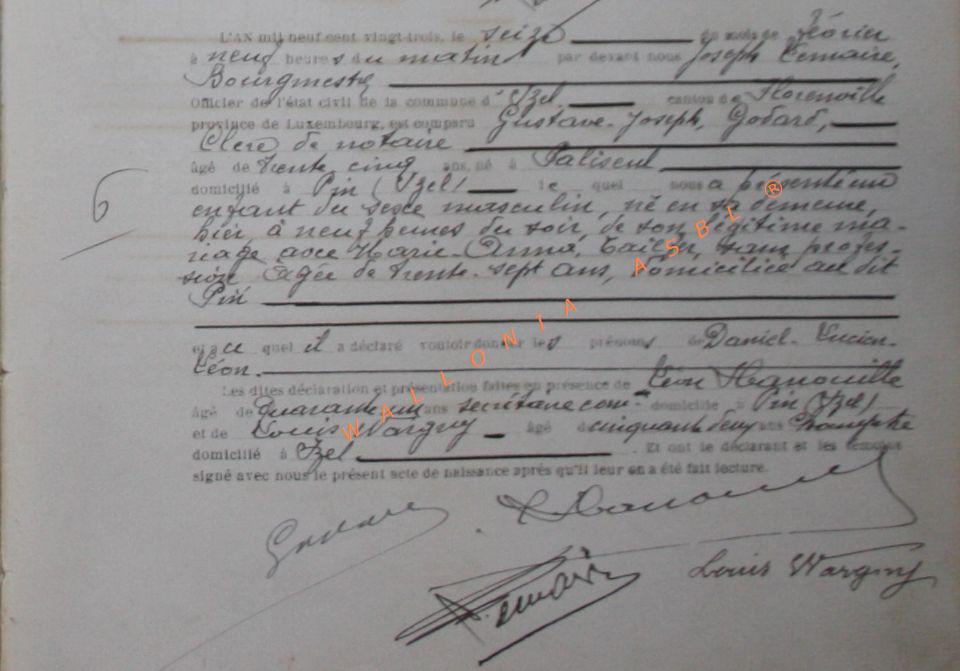 L'AN mil neuf cent vingt-trois, le seize du mois de Février
à neuf heures du matin par devant nous Joseph Lemaire,
Bourgmestre
Officier de l'état civil de la commune d'Izel, canton de Florenville
province de Luxembourg, est comparu Gustave-Joseph, Godard,
Clerc de notaire
âgé de trente cinq ans, né à Paliseul
domicilié à Pin (Izel) le quel nous a présenté un
6
enfant du sexe masculin, né en sa demeure,
hier, à neuf heures du soir, de son légitime ma-
riage avec Marie-Anna, sans profes-
sion âgée de trente-sept ans, domiciliée au dit
Pin
et a quel il a déclaré vouloir donner les prénoms de Daniel-Lucien-
Léon.
Les dites déclaration et présentation faites en présence de Léon Hanouille
âgé de quarante un ans secrétaire com domicilié à Pin (Izel)
et de Louis Wargny âgé cinquante deux ans
domicilié à Izel . Et ont le déclarant et les témoins
signé avec nous le présent acte de naissance après qu'il leur en a été fait lecture.
Godard
L Hanouille
Lemaire
Louis Wargny
WALLONIA ASBL ®